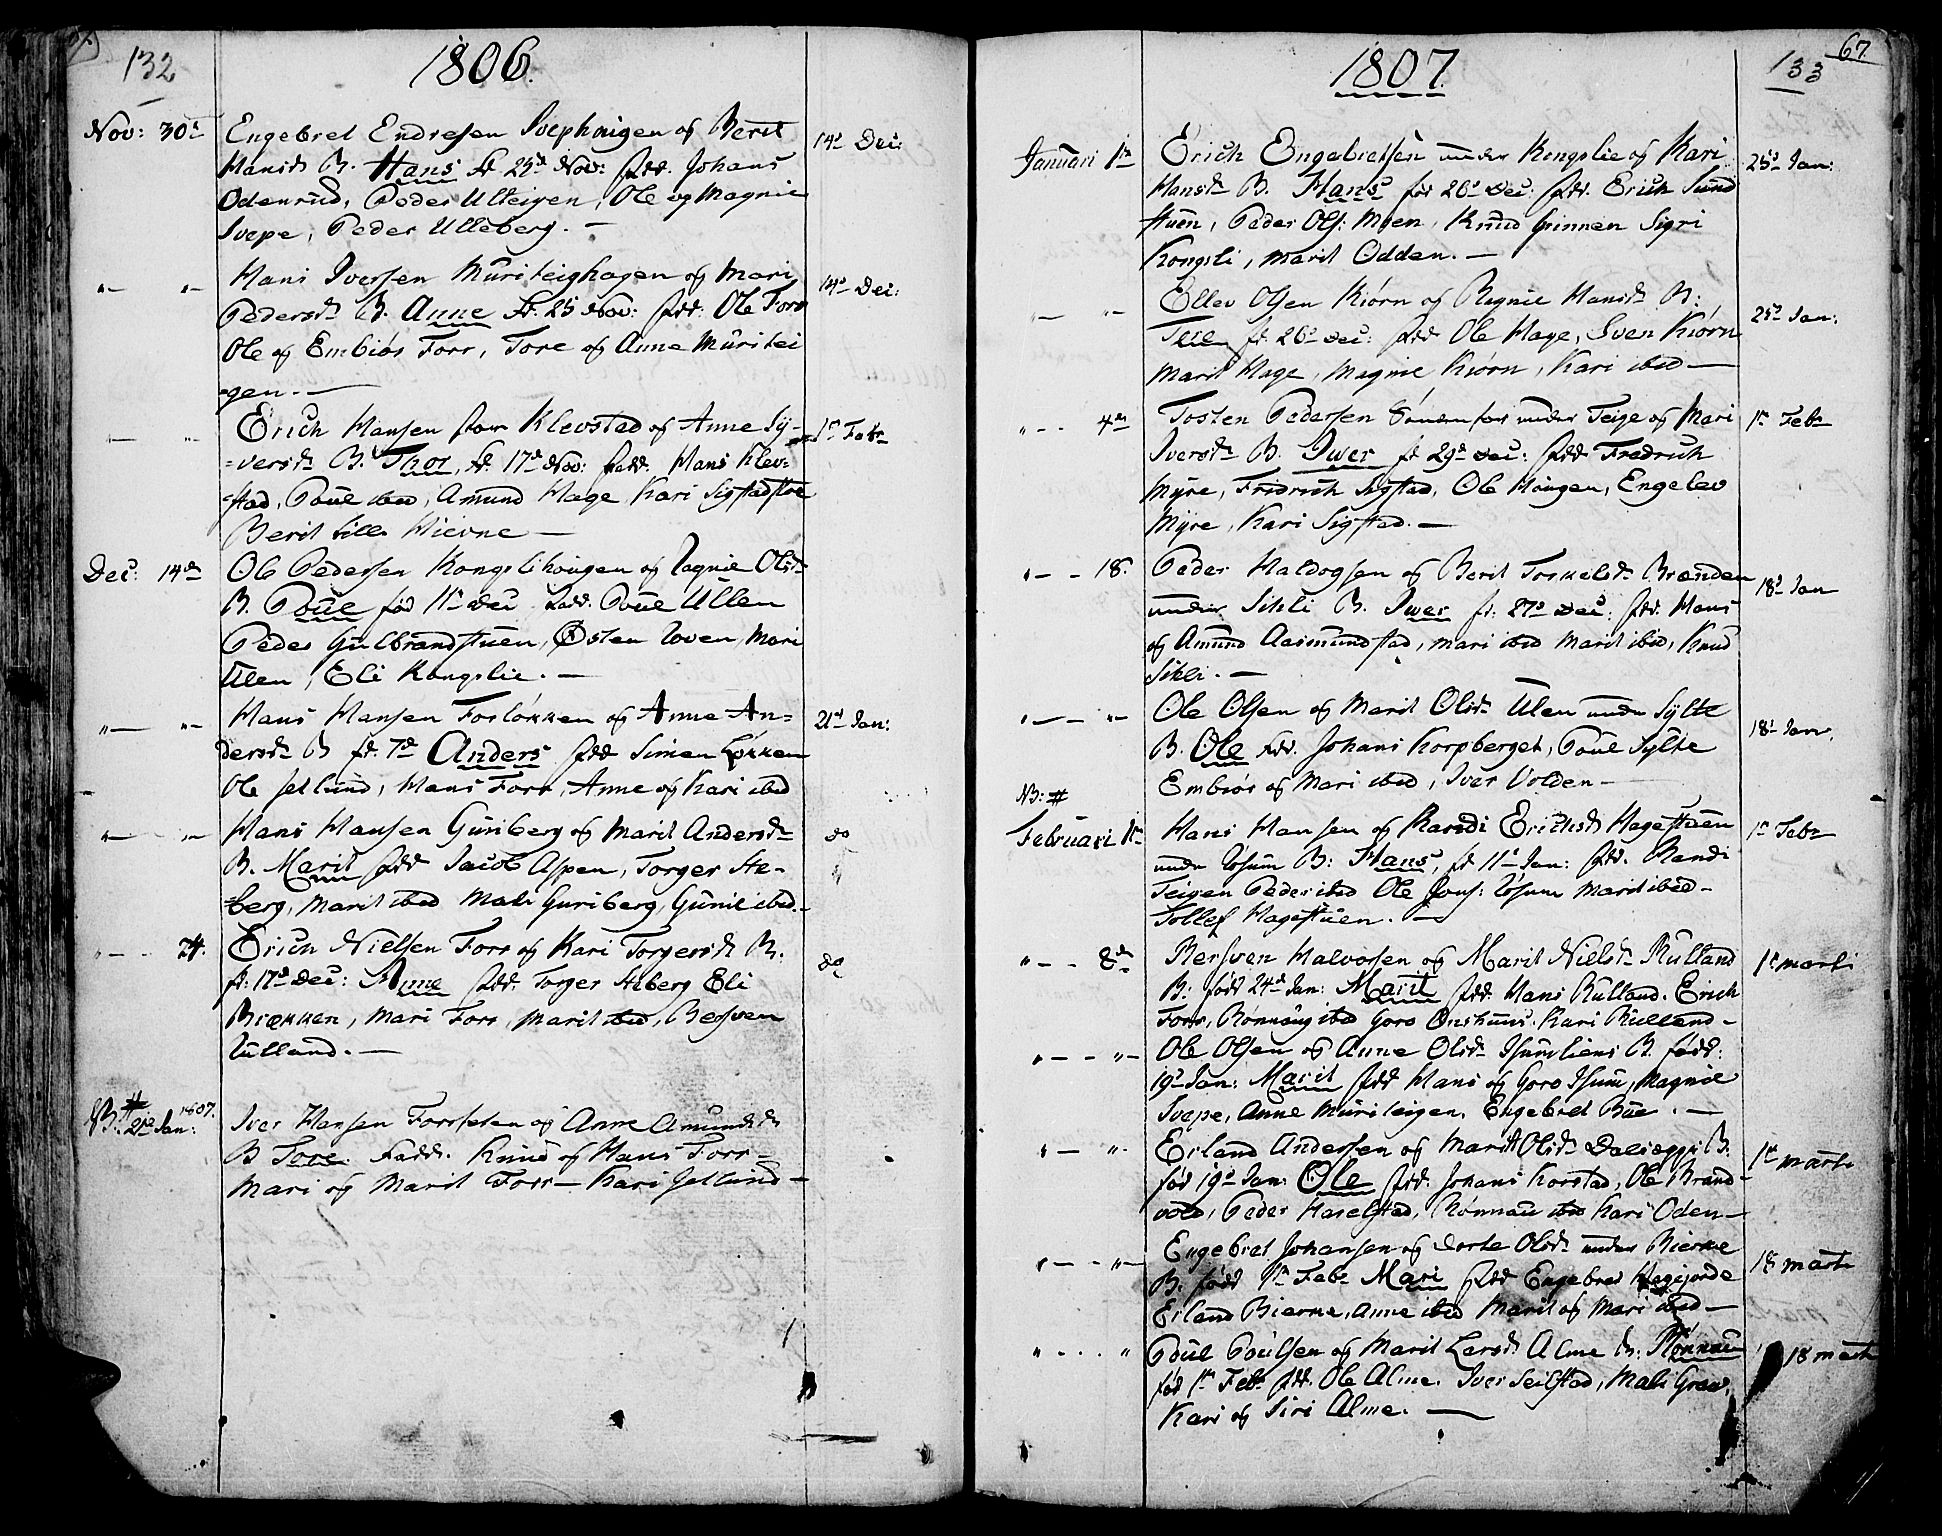 132
1806.
Nov: 30te Engebret Endresen Svephougen og Berit 14d Dec:
Hansd. B. Hans fd. 24d Nov: fdd. Johans
Odenrud, Peder Ulteigen, Ole og Magnie
Svepe, Peder Ulleberg. —
"— "— Hans Iversen Muriteighagen og Mari 14d Dec:
Pedersd. B. Anne fd. 25 Nov: fdd: Ole Forr
Ole og Embiør Forr, Tore og Anne Muritei
gen. —
"— "— Erich Hansen Klevstad og Anne Sy- 1ste Febr
=versd. B. Thor, fd. 17d Nov: fadd. Hans Klev=
=stad, Poul ibid, Amund Hage, Kari Sigstadstue
Berit Lille Hievne —
Dec: 14de Ole Pedersen Kongslihougen og Ragnie Olsd.
B. Poul fød 11te Dec fadd. Poul Ullen
Peder Gulbrandstuen, Østen Loven, Mari
Ulen, Eli Kongslie. —
"— "— Hans Hansen Forløkken og Anne An= 21d Jan:
dersd. B fd. 7d Anders fdd Simen Løkken
Ole Jetlund, Hans Forr, Anne og Kari ibid
"— "— Hans Hansen Guriberg og Marit Andersd. do
B. Marit fdd Jacob Aspen, Torger Ste-
=berg, Marit ibid Mali Guriberg, Gunil ibid. —
"— - 24. Erich Nielsen Forr og Kari Torgersd. B. do
fd. 17d Dec: Anne fdd. Torger Steberg Eli
Brækken, Mari Forr, Marit ibid, Bersven
Rulland. —
NB. # 21de Jan: 1807. Iver Hansen og Anne Amundsd.
B Tore. Fadd. Knud og Hans Forr —
Mari og Marit Forr — Kari Jetlund —
67.
133
1807.
Januari 1ste Erich Engebretsen under Kongslie og Kari 25d Jan:
Hansd. B. Hans fød 26d Dec: fdd. Erich Sund
stuen, Peder Ols: Moen, Knud Sigri
Kongsli, Marit Odden. —
"— "— Ellev Olsen Kiørn og Ragnie Hansd. B: 25d Jan:
fd. 26d Dec: fdd Ole Hage, Sven Kiørn
Marit Hage, Magnie Kiørn, Kari ibid —
"— - 4de Tosten Pedersen Søndenfor under Teige og Mari 1ste Febr
Iversd. B. Iwer fd 29d Dec: fdd Fredrich
Myre, Fridrich Sigstad, Ole Hougen, Engelev
Myre, Kari Sigstad. —
"— - 18. Peder Haldogsen og Berit Torkelsd. Brænden 18d Jan
under Sikli B. Iwer fd. 27d Dec: fdd. Hans
og Amund Aasmundstad, Mari ibid Marit ibid, Knud
Sikli. —
"— - "— Ole Olsen og Marit Olsd. Ulen under Sylte 18d Jan.
B. Ole fdd. Johans Korpberget, Poul Sylte
Embiør og Mari ibid, Iver Volden —
NB: #
Februari 1ste Hans Hansen og Randi Erichsd. Hagestuen 1ste Febr
under Løsum B: Hans, fd 11d Jan: fdd. Randi
Teigen Peder ibid Ole Jons: Løsum Marit ibid —
Tollef Hagestuen. —
"— - 8de Bersven Halvorsen og Marit Nielsd. Rulland 1ste marti
B: født 24d Jan: Marit fdd. Hans Rulland. Erich
Forr, Ronnaug ibid Goro Onshuus. Kari Rulland —
"— - "— Ole Olsen og Anne Olsd. Isumliens B. født:
19d Jan: Marit fdd Hans og Goro Isum, Magnie
Svepe, Anne Muriteigen, Engebret Bue. —
"— "— Erland Andersen og Marit Olsd. Dalseggi B. 1ste marti
fød 19d Jan: Ole fdd. Johans Korstad, Ole Brand-
vold, Peder Harelstad, Rønnau ibid Kari Oden —
"— - "— Engebret Johansen og Dorte Olsd. under Bierke 1ste marti
B. født 1ste Febr Mari fdd Engebret Hegejorde
Erland Bierke, Anne ibid Marit og Mari ibid —
" - - - " Poul Poulsen og Marit Larsd. Alme B: Rønnau 18 marti
fød 1ste Febr. fdd. Ole Alme. Iver Seilstad, Mali Grav,
Kari og Siri Alme. —